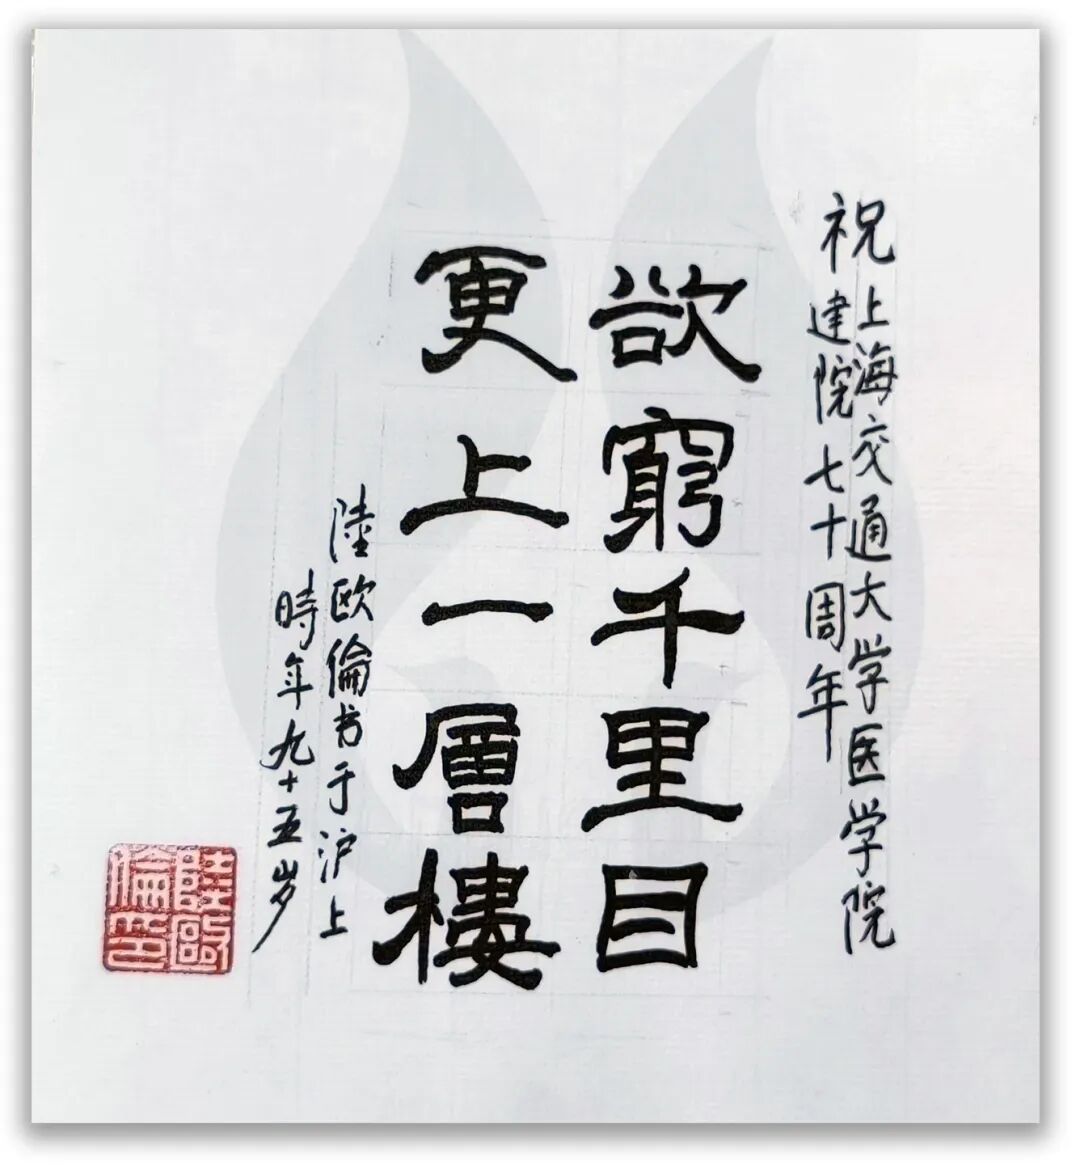 祝上海交通大学医学院
建院七十周年
欲窮千里目
更上一層樓
陸欧倫书于沪上
時年九十五岁
陸歐倫印